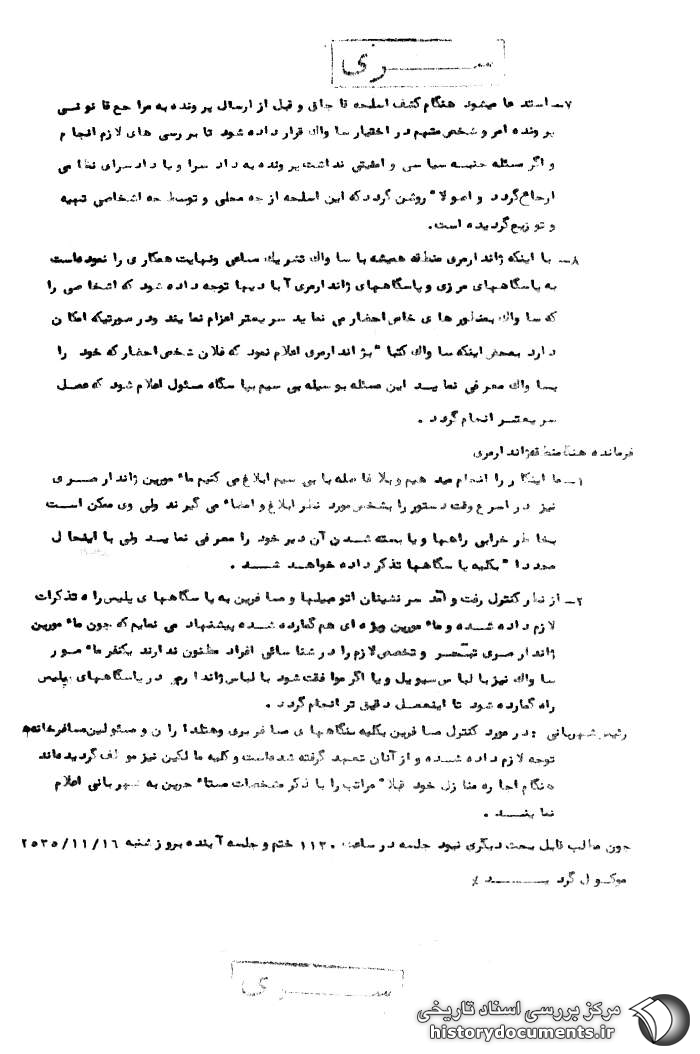 ســـری
۷ــ استدعا میشود هنگام کشف اسلحه قاچاق و قبل از ارسال پرونده به مراجع قانونــی
پرونده امر و شخص متهم در اختیار ساواک قرار داده شود تا بررسی های لازم انجام
و اگر مسئله جنبه سیاسی و امنیتی نداشت پرونده به دادسرا و یا دادسرای نظامی
ارجاع گردد و اصولا" روشن گردد که این اسلحه از چه محلی و توسط چه اشخاصی تهیه
و توزیع گردیده است.
۸ــ با اینکه ژاندارمری منطقه همیشه با ساواک تشریک مساعی ونهایت همکاری را نموده‌است
به پاسگاههای مرزی و پاسگاههای ژاندارمری آبادیها توجه داده شود که اشخاصی را
که ساواک بمنظورهای خاص احضار می نماید سریعتر اعزام نمایند ودرصورتیکه امکان
دارد بمحض اینکه ساواک کتبا" بژاندارمری اعلام نمود که فلان شخص احضار که خود را
بساواک معرفی نمایـد این مسئله بوسیله بی سیم بپاسگاه مسئول اعلام شود که عمل
سریعتــر انجام گردد .
فرمانده هنگ منطقه ژاندارمری
۱ــ ما اینکار را انجام میدهیم و بلافاصله با بی سیم ابلاغ می کنیم ما"مورین ژاندارمــری
نیز در اسرع وقت دستور را بشخص مورد نظر ابلاغ و امضاء می گیرند ولی وی ممکن اسـت
بخاطر خرابی راهها و یا بسته شدن آن دیر خود را معرفی نمایـد ولی با اینحال
مجددا" بکلیه پاسگاهها تذکر داده خواهـد شـــد .
۲ــ از نظر کنترل رفت و آمد سرنشینان اتومبیلها و مسافرین به پاسگاههای پلیس راه تذکرات
لازم داده شــده و ما"مورین ویژه ای هم گمارده شــده پیشنهاد می نمایم که چون ما"مورین
ژاندارمری تبحــر و تخصص لازم را در شناسائی افراد مظنون ندارند یکنفر ما"مـور
ساواک نیز با لباس سیویل و یا اگر موافقت شود با لباس ژاندارمری در پاسگاههای پلیس
راه گمارده شود تا اینعمل دقیق تر انجام گردد .
رئیس شهربانی : در مورد کنترل مسافرین بکلیه بنگاههای مسافربری وهتلداران و مسئولین مسافرخانه‌ها
توجه لازم داده شــده و از آنان تعهد گرفته شده‌است و کلیه مالکین نیز موظف گردیده‌اند
هنگام اجاره منازل خود قبلا" مراتب را با ذکر مشخصات مستاءجرین به شهربانی اعلام
نماینــد .
چون مطالب قابل بحث دیگری نبود جلسه در ساعت ۱۱۳۰ ختم و جلسه آینده بروز شنبه ۲۵۳۵/۱۱/۱۶
موکـول گردیــــــد
ســـری
مرکز بررسی اسناد تاریخی
historydocuments.ir